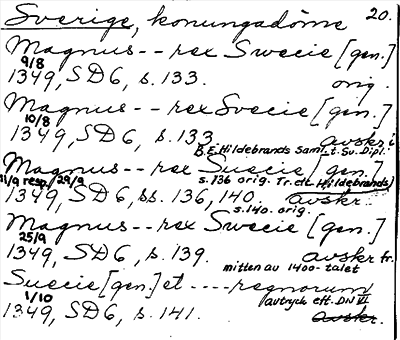 Sverige, konungadöme 20.
Magnus -- rex Swecie [gen.]
9/8
1349, SD6, s. 133. orig.
Magnus -- rex Svecie [gen.]
10/8
1349, SD6, s. 133 avskr. i
B.E. Hildebrands Saml. t. Sv. Dipl.
Magnus -- rex Suecie [gen.]
11/9 resp. 29/9 s. 136 orig. Tr. eft. Hildebrands)
1349, SD6, ss. 136, 140. avskr.
s. 140. orig.
Magnus -- rex Swecie [gen.]
25/9
1349, SD6, s. 139. avskr. fr.
mitten av 1400-talet
Suecie [gen.] et ---- regnorum
1/10 (avtryck eft. DN VI
1349, SD6, s. 141. avskr.